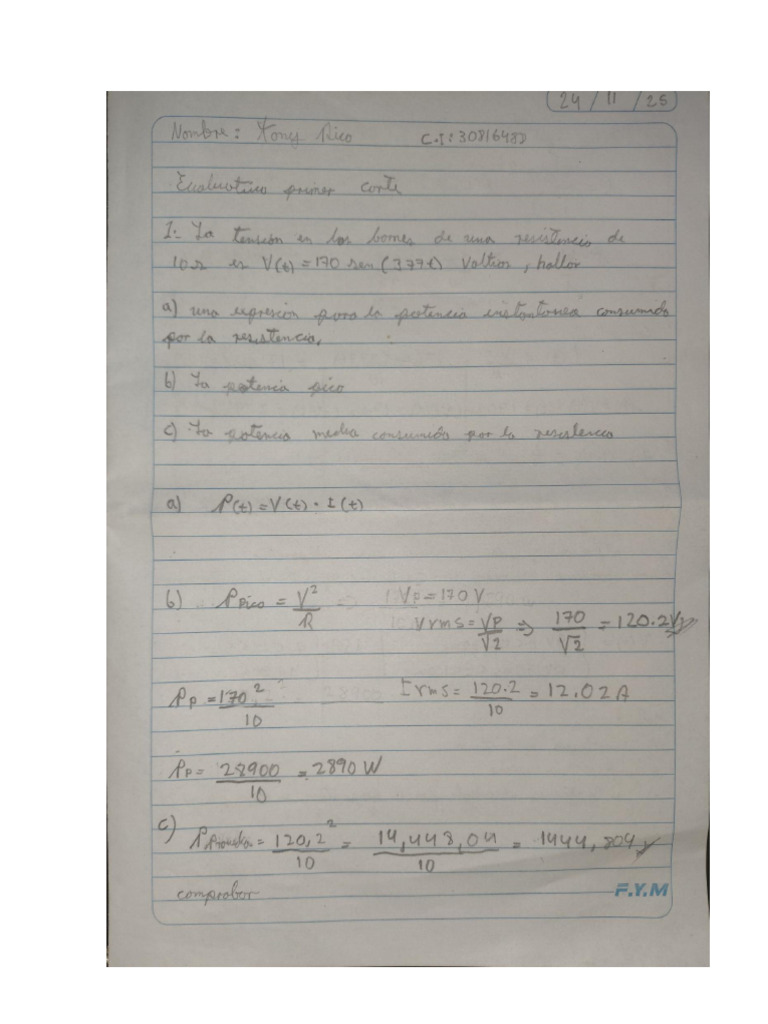 24/11/25
Nombre: Tony Rico C.I: 3081648
Evaluativo primer corte
1.- La tensión en los bornes de una resistencia de
10Ω es V(t) = 170 sen (377t) Voltios, hallar
a) una expresión para la potencia instantonea consumida
por la resistencia,
b) La potencia pico
c) La potencia media consumida por la resistencia
a) P(t) = V(t) · I(t)
b) P pico = V²/R Vp = 170 V
Vrms = Vp/√2 ⇒ 170/√2 = 120.2V
Pp = 170²/10 Irms = 120.2/10 = 12.02A
Pp = 28900/10 = 2890 W
c) P = 120,2²/10 = 14,448,04/10 = 1444,804
comprobar
F.Y.M